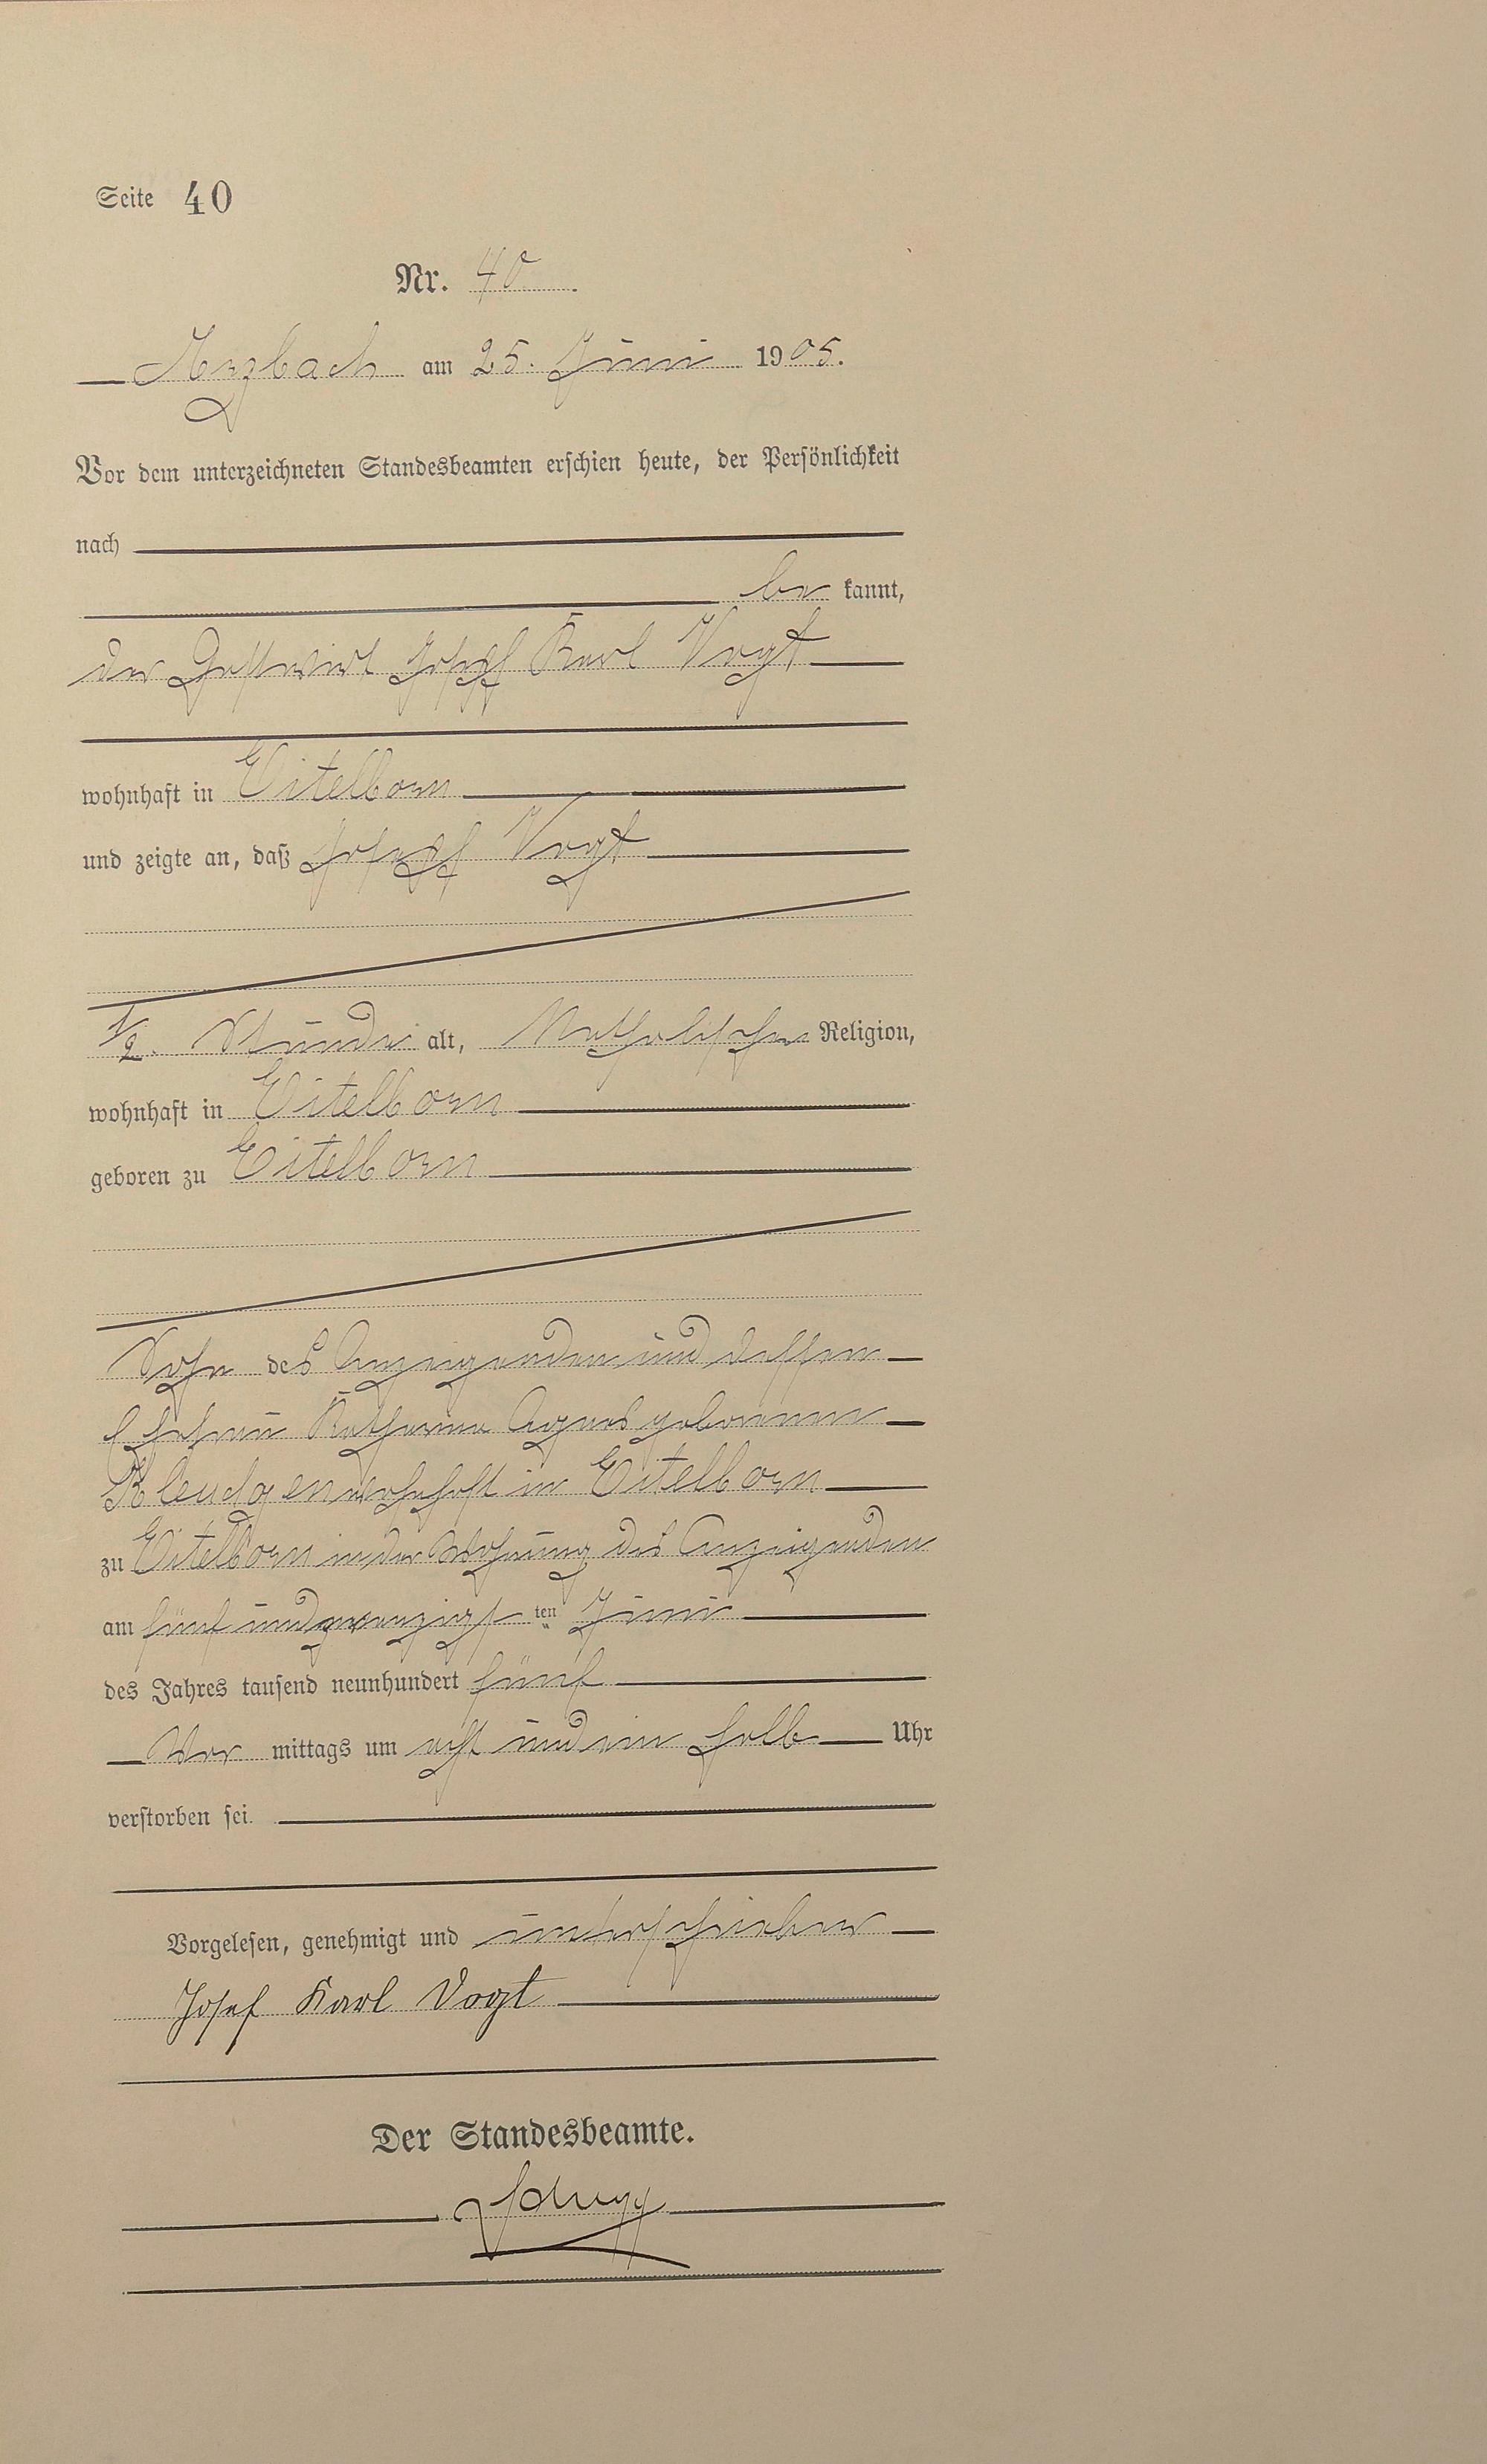 Seite 40
Nr. 40
Arzbach am 25. Juni 1905.
Vor dem unterzeichneten Standesbeamten erschien heute, der Persönlichkeit
nach
be kannt,
der Gastwirt Joseph Karl Vogt
wohnhaft in Eitelborn
und zeigte an, daß Joseph Vogt
1/2 Stunde alt, katholischer Religion,
wohnhaft in Eitelborn
geboren zu Eitelborn
Sohn des Anzeigenden und dessen
Ehefrau Katharina Agnes geborenen
Kleudgen wohnhaft in Eitelborn
zu Eitelborn in der Wohnung des Anzeigenden
am fünf und zwanzigsten Juni
des Jahres tausend neunhundert fünf
Vor mittags um acht und ein halb Uhr
verstorben sei.
Vorgelesen, genehmigt und unterschrieben
Josef Karl Vogt
Der Standesbeamte.